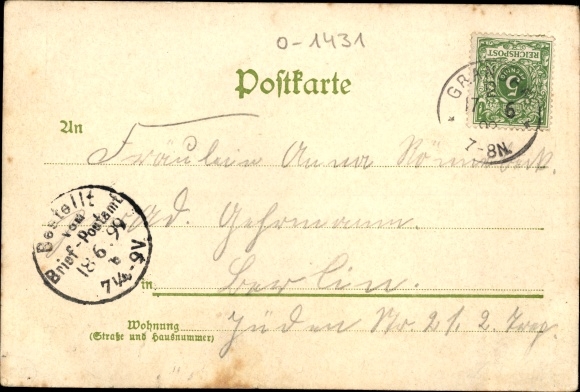 0-1431
REICHSPOST
5
GR
17 6
7-8N.
Postkarte
An
Fräulein Anna
Ad. Gehrmann.
Bestellt
vom
Brief-Postamt
18.6.99
7¼-9V
in Berlin.
Wohnung
(Straße und Hausnummer)
Jüden Str. 21. 2. Trep.